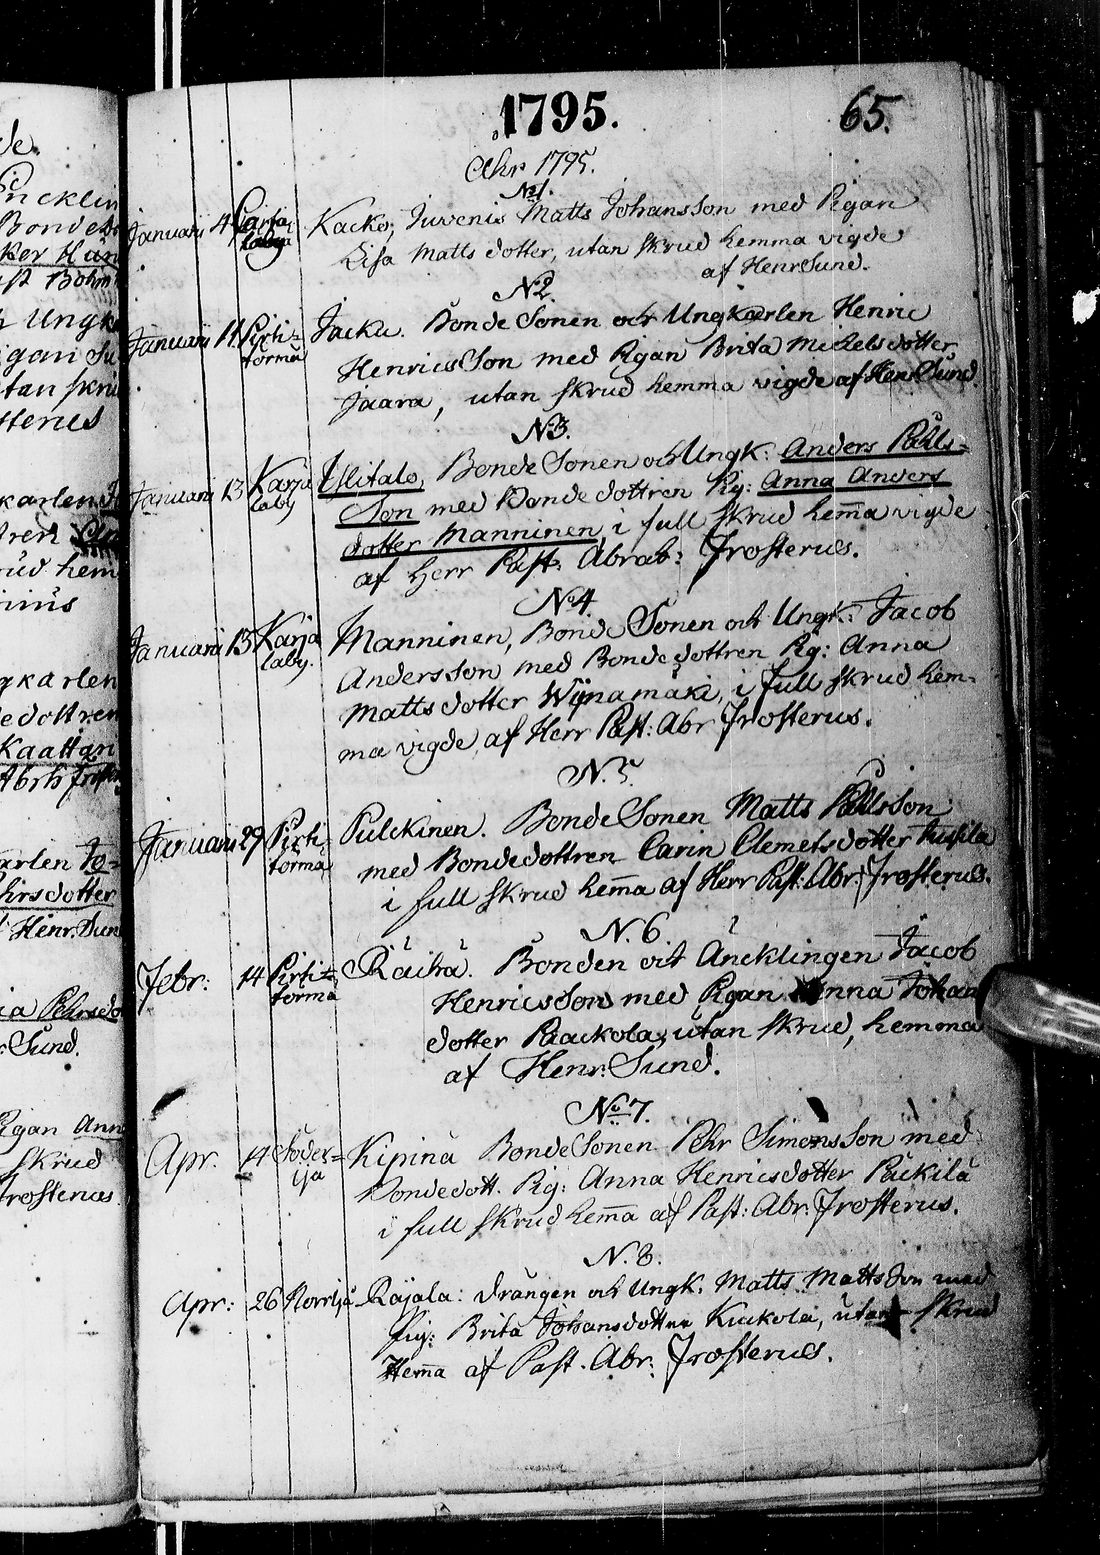 1795.
65.
Åhr 1795.
No 1.
Januari 4 Kacko, Juvenis Matts Johansson med Pigan
Lisa Matts dotter, utan skrud hemma vigde
af Henr Sund.
N2.
Januari 11 Pirti=
torma
Jacku. Bonde Sonen och Ungkarlen Henric
Henricsson med Pigan Brita Michelsdotter
Jaara, utan skrud hemma vigde af Henr Sund
N3.
Januari 13 Karja
laby
Ylitalo, Bonde Sonen och Ungk: Anders Påhls-
Son med Bonde dottren Pig: Anna Anders
dotter Manninen, i full skrud hem̄a vigde
af Herr Past: Abrah: Frosterus.
No 4.
Januari 13 Karja
laby.
Manninen, Bonde Sonen och Ungk: Jacob
Andersson med Bonde dottren Pig: Anna
Matts dotter Wijnamäki, i full skrud hem-
ma vigde af Herr Past: Abr Frosterus.
N. 5
Januari 29 Pirti
torma
Pulckinen. Bonde Sonen Matts Påhlsson
med Bondedottren Carin Clemetsdotter
i full skrud hem̄a af Herr Past: Abr: Frosterus.
N. 6
Febr: 14 Pirti=
torma
Räihä. Bonden och Äncklingen Jacob
Henricsson med Pigan Anna Johan
dotter Raackola, utan skrud, hemma
af Henr: Sund.
No 7.
Apr. 14 Söder=
ijä
Kipinä Bonde Sonen Pehr Simonsson med
Bondedott. Pig: Anna Henricsdotter Päckilä
i full skrud hem̄a af Past: Abr: Frosterus.
N. 8.
Apr: 26 Norrijä Rajala: drängen och Ungk. Matts Mattsson med
Pig: Brita Johansdotter Kuckola, utan skrud
Hem̄a af Past. Abr: Frosterus.